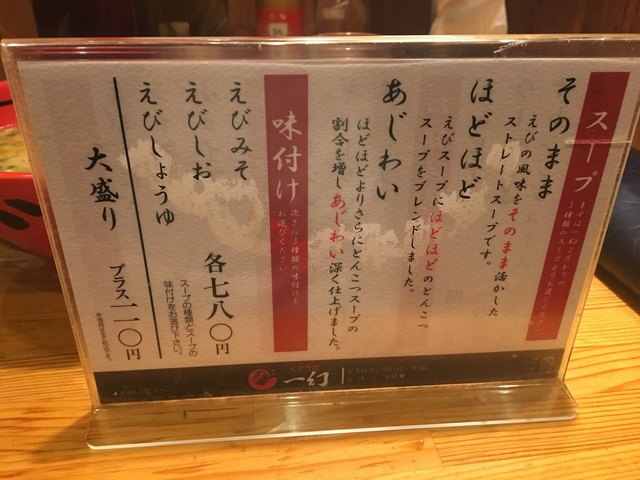 スープ
まずは一幻こだわりの
3種類のスープよりお選びください
そのまま
えびの風味をそのまま活かした
ストレートスープです。
ほどほど
えびスープにほどほどのとんこつ
スープをブレンドしました。
あじわい
ほどほどよりさらにとんこつスープの
割合を増しあじわい深く仕上げました。
味付け
次に3種類の味付けを
お選びください
えびみそ
えびしお
えびしょうゆ
各七八〇円
スープの種類とスープの
味付けをお選び下さい。
大盛り
プラス一一〇円
一幻